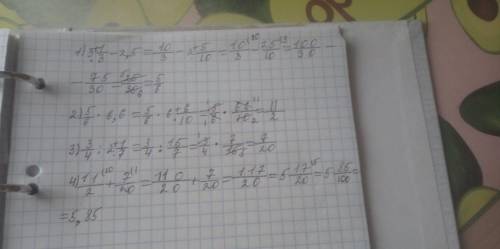 1) 3 1/3 - 2,5 = 10/3 - 25/10 = 10/3 - 25/10 = 100/30 -
- 75/30 = 25/30 = 5/6
2) 5/6 · 6,6 = 5/6 · 6 6/10 = 5/6 · 66/10 = 11/2
3) 3/4 : 2 1/7 = 3/4 : 15/7 = 3/4 · 7/15 = 7/20
4) 11/2 + 7/20 = 110/20 + 7/20 = 117/20 = 5 17/20 = 5 85/100 =
= 5,85